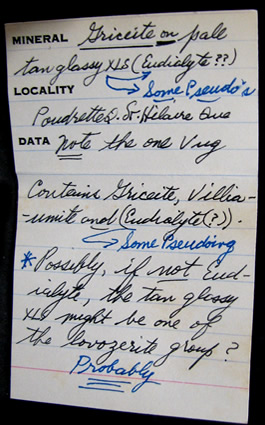 MINERAL Griceite on pale
tan glassy XLS (Eudialyte??)
Some Pseudo's
LOCALITY
Poudrette Q. St. Hilaire Que
DATA Note the one Vug
Contains Griceite, Villia-
-umite and (Eudialyte(?)).
Some Pseudoing
*Possibly, if not Eud-
ialyte, the tan glassy
XLS might be one of
the lovozerite group?
Probably